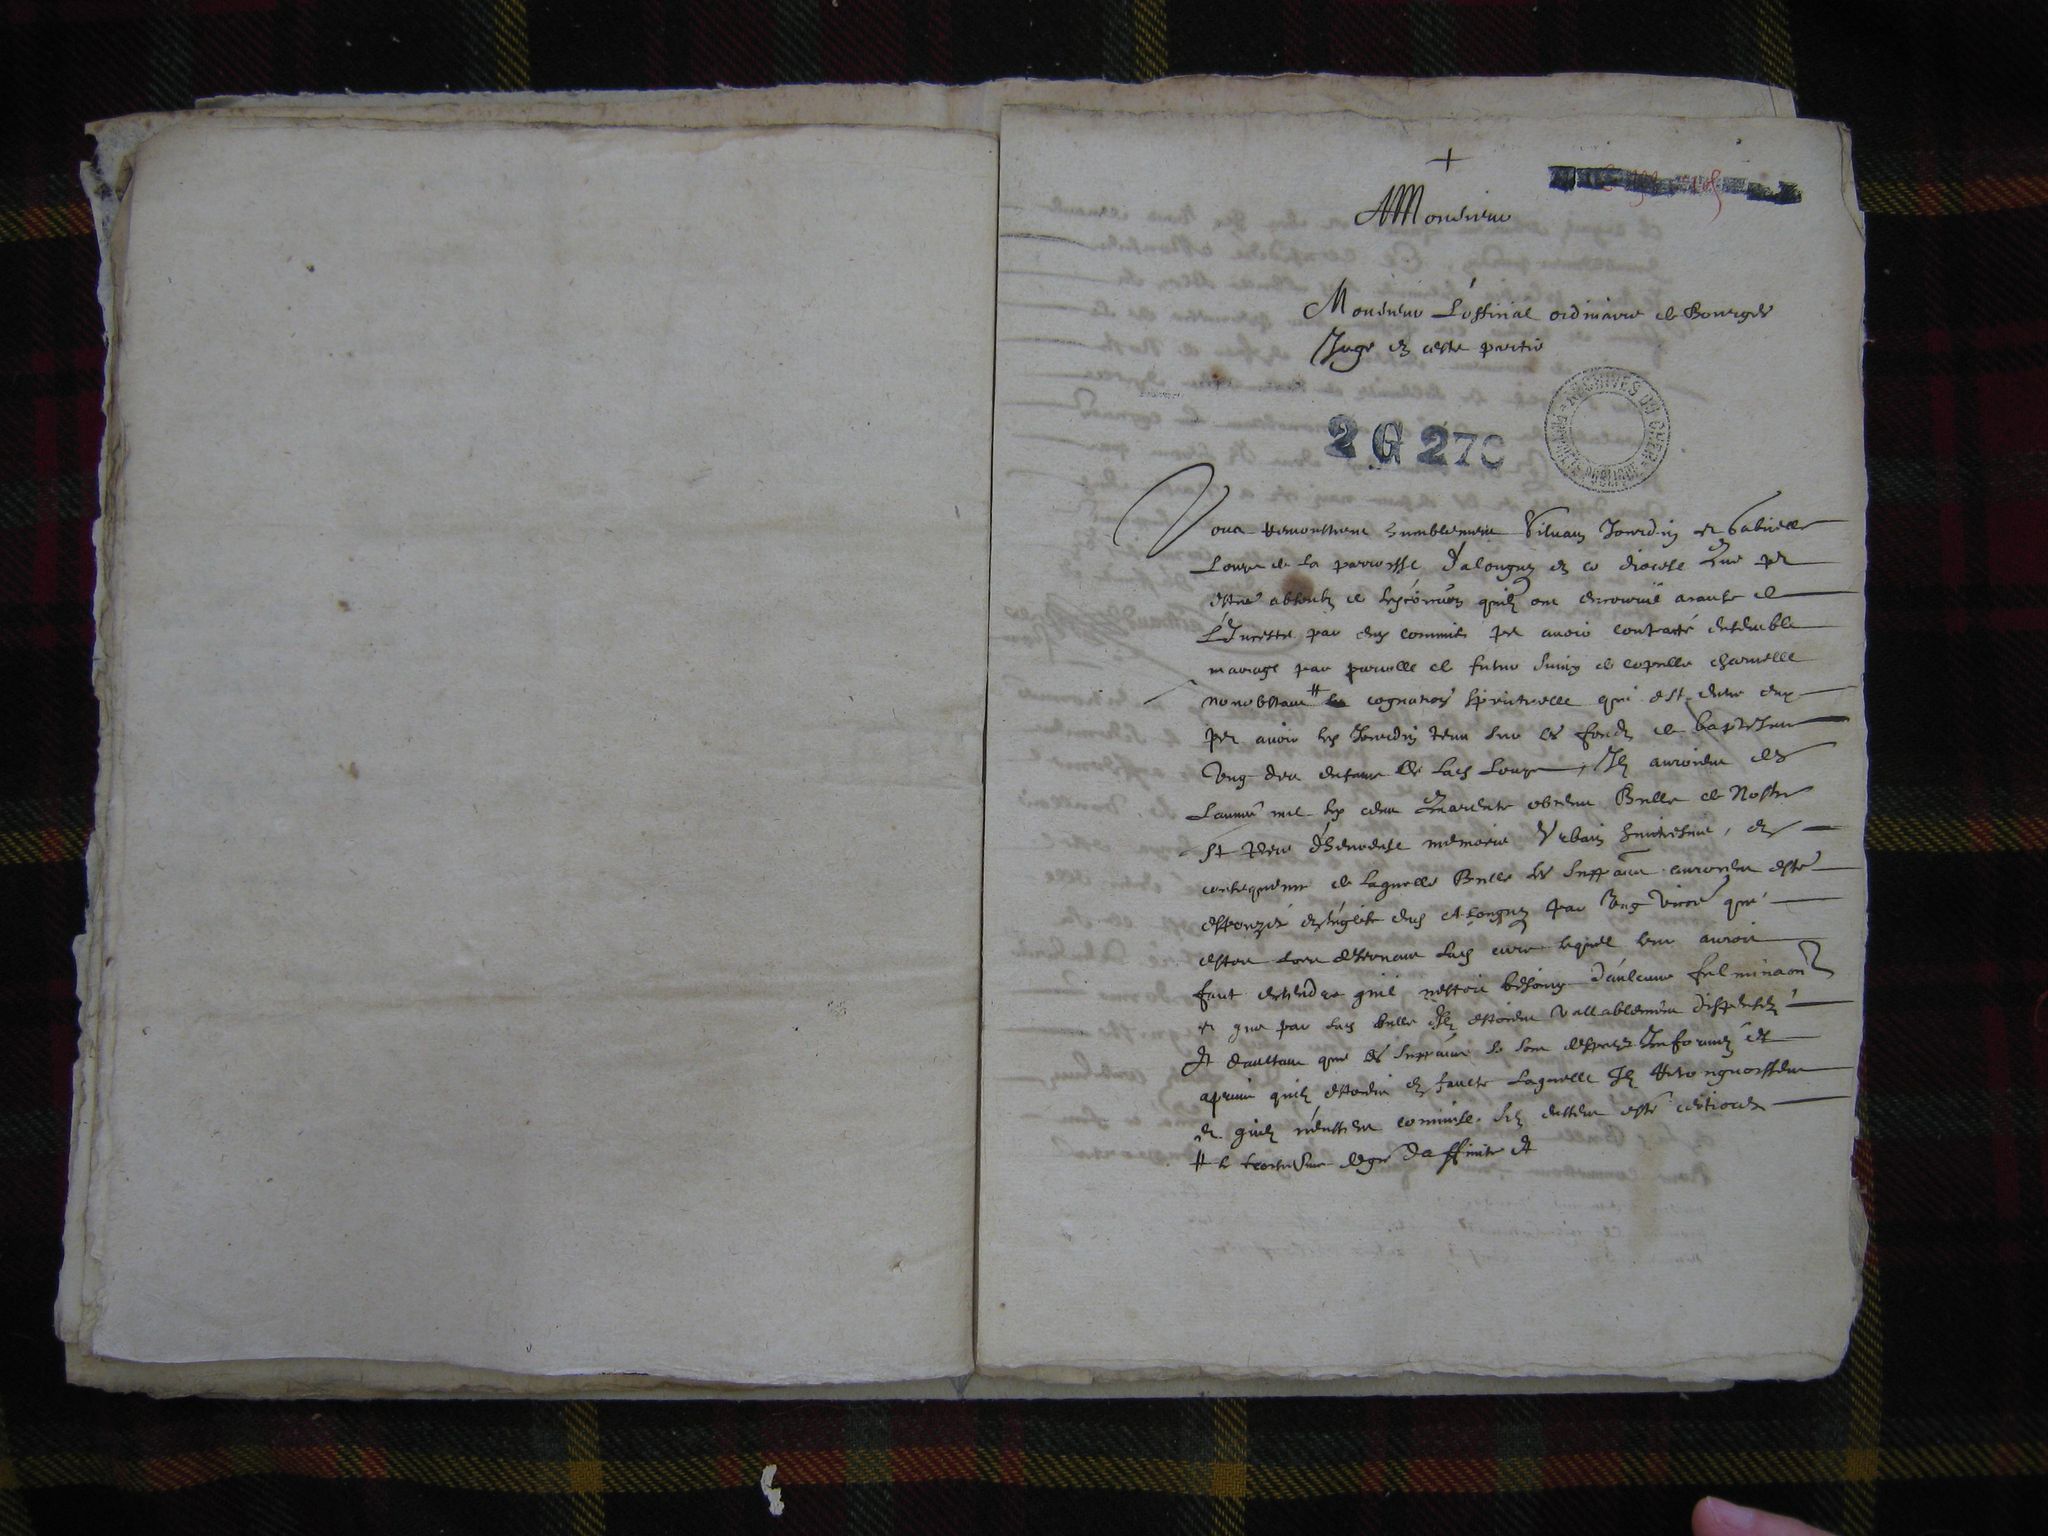 +
A Monsieur
Monsieur L'official ordinaire de Bourges
Juge en ceste partie
2 G 270
ARCHIVES DU CHER
Vous remonstrent humblement Silvain Jourdin et Gabrielle
Loupe de la parroisse d'alougny en ce diocese que pr
estre absoubz de quilz ont encouruë a cause de
L'Inceste par eux commis pr avoir contracté ensemble
mariage par parolle de futur suivy de copulle charnelle
nonobstant # la cognation spirituelle qui est entre eux
pr avoir led Jourdin tenu sur les fondz de baptesme
ung des enfans de lad Loupe, Ilz auroient des
L'année mil six cent quarente obtenu Bulle de Nostre
St Pere d'heureuse memoire Urbain huictiesme, en
consequence de laquelle Bulle les supp auroient esté
espouzés en l'eglise dud Alougny par ung vicaire qui
estoit lors desservant lad cure lequel leur auroit
faict entendre quil n'estoit besoing d'aulcune fulminaon
et que par lad bulle Ilz estoient vallablement dispensez
Et d'aultant que les supp se sont despuis Informez et
apprins quilz estoient en faulte laquelle Ilz recongnoissent
et quilz n'eussent commise silz eussent esté
# le troisiesme degré d'affinité et